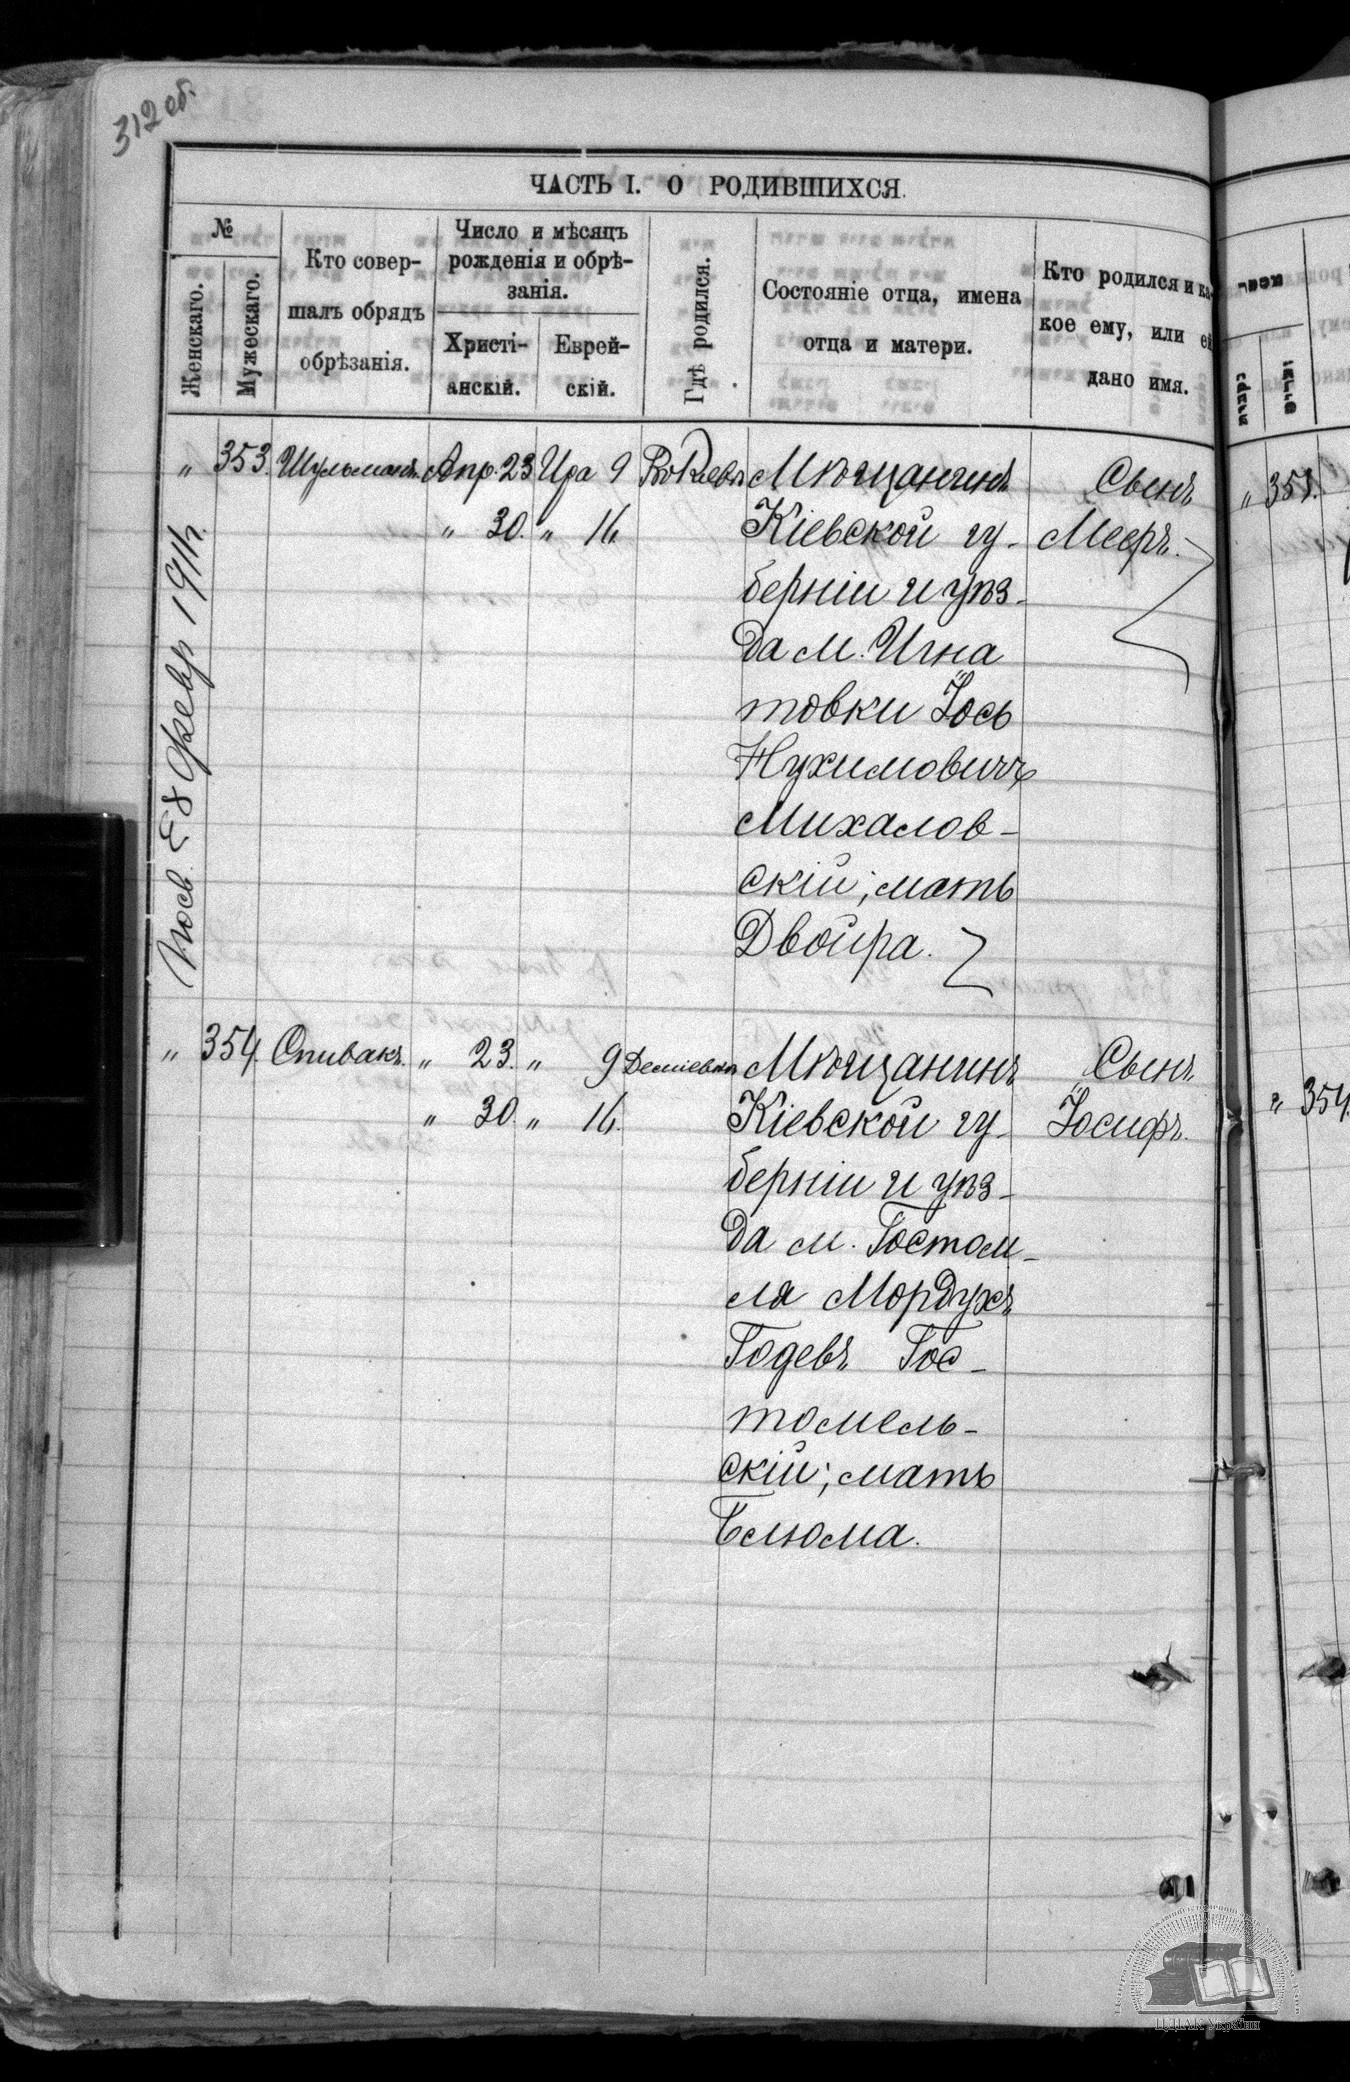 312 об.
ЧАСТЬ I. О РОДИВШИХСЯ.
№
Женскаго.
Мужескаго.
Кто совер-
шалъ обрядъ
обрѣзанія.
Число и мѣсяцъ
рожденія и обрѣ-
занія.
Христі-
анскій.
Еврей-
скій.
Гдѣ родился.
Состояніе отца, имена
отца и матери.
Кто родился и ка-
кое ему, или ей
дано имя.
„ 353. Шульманъ. Апр. 23 Ира 9 Въ Кіевѣ Мѣщанинъ Сынъ
„ 30. „ 16 Кіевской гу- Мееръ.
берніи и уѣз-
да м. Игна
товки Іось
Нухимовичъ
Михалов-
скій; мать
Двойра.
8 февр 1911 г.
„ 354. Спивакъ. „ 23. „ 9 Деміевкѣ Мѣщанинъ Сынъ
„ 30. „ 16. Кіевской гу- Іосифъ.
берніи и уѣз-
да м. Гостом-
ля Мордухъ
Годевъ Гос-
томель-
скій; мать
Блюма.
„ 353.
„ 354.
ЦДІАК України